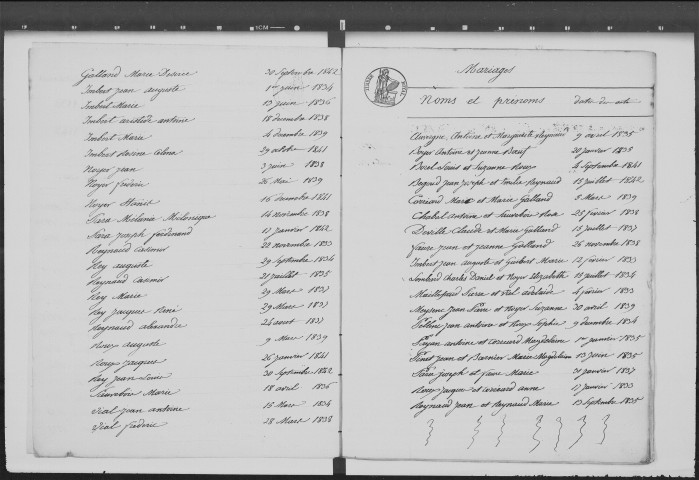 Galland Marie Desirée 20 Septembre 1842
Imbert jean auguste 1er juin 1834
Imbert Marie 13 juin 1836
Imbert aristide antoine 18 decembre 1838
Imbert Marie 4 decembre 1839
Imbert Rosine Elina 29 octobre 1841
Noyer jean 3 juin 1838
Noyer frédéric 26 Mai 1839
Noyer 16 decembre 1841
Para Mélanie 14 novembre 1838
Para joseph ferdinand 17 janvier 1842
Reynaud Casimir 22 novembre 1833
Rey auguste 29 Septembre 1834
Reynaud Casimir 21 juillet 1835
Rey Marie 29 Mars 1837
Rey jacques René 29 Mars 1837
Reynaud alexandre 24 aout 1837
Roux auguste 9 Mars 1839
Roux jacques 26 janvier 1841
Rey jean Louis 30 Septembre 1842
Marie 18 avril 1836
Vial jean antoine 16 Mars 1834
Vial frédéric 28 Mars 1838
Mariages
Noms et prénoms date des acte
Antoine et Marguerite Reynaud 9 avril 1835
Boyer Antoine et jeanne Bœuf 20 janvier 1835
Borel Louis et Suzanne Roux 4 Septembre 1841
jean joseph et Emilie Reynaud 18 juillet 1842
Marc et Marie Galland 5 Mars 1839
Chabal antoine et Rose 25 février 1838
Deville Claude et Marie Galland 15 juillet 1837
Faure jean et jeanne Galland 26 novembre 1838
Imbert jean auguste et Guibert Marie 12 février 1833
Lombard Charles Daniel et Noyer Elizabeth 18 juillet 1834
Pierre et Vial adelaide 4 février 1833
jean Pierre et Noyer Suzanne 30 avril 1839
jean antoine et Roux Sophie 9 decembre 1834
antoine et Magdelaine 1er janvier 1835
jean et Barnier Marie Magdelaine 13 juin 1835
Para joseph et Faure Marie 31 janvier 1837
Roux jacques et anne 17 janvier 1833
Reynaud jean et Reynaud Marie 13 Septembre 1835